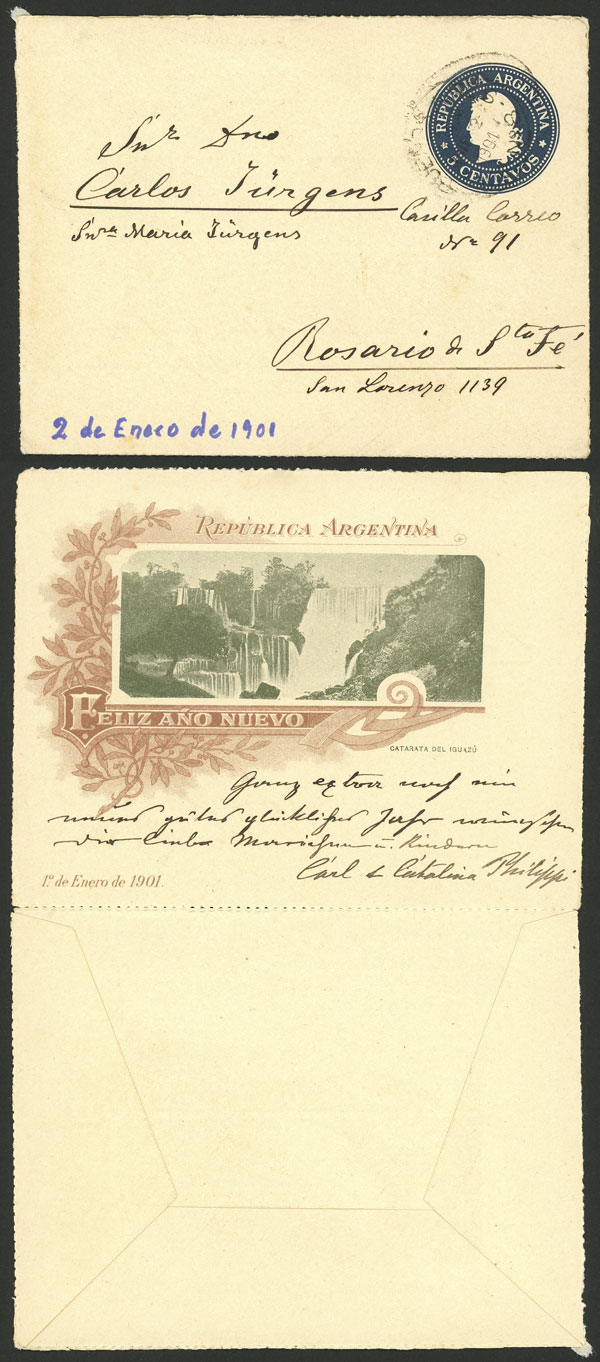 REPÚBLICA ARGENTINA
5 CENTAVOS
Sñr Dno
Cárlos Jürgens
Sñra Maria Jürgens
Casilla Correo
Nº 91
Rosario de Sta Fé
San Lorenzo 1139
2 de Enero de 1901
REPÚBLICA ARGENTINA
FELIZ AÑO NUEVO
CATARATA DEL IGUAZÚ
Ganz extra noch ein
glückliches Jahr wünschen
u. Kindern
Cárl & Cátalina Philippi
1º de Enero de 1901.